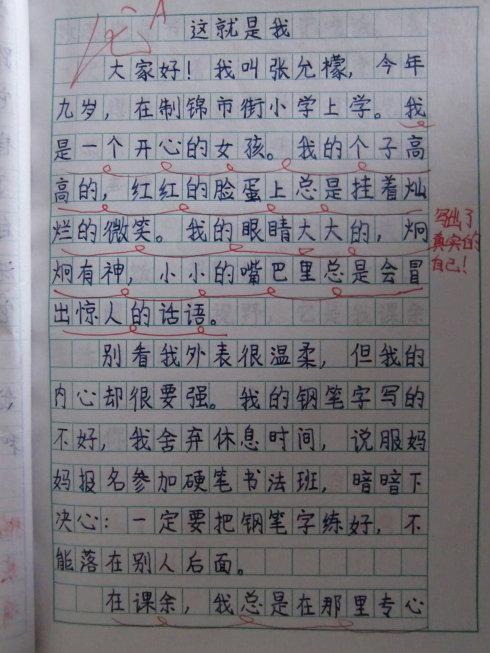 优 A
这就是我
大家好！我叫张允檬，今年
九岁，在制锦市街小学上学。我
是一个开心的女孩。我的个子高
高的，红红的脸蛋上总是挂着灿
烂的微笑。我的眼睛大大的，炯
炯有神，小小的嘴巴里总是会冒
出惊人的话语。
写出了
真实的
自己！
别看我外表很温柔，但我的
内心却很要强。我的钢笔字写的
不好，我舍弃休息时间，说服妈
妈报名参加硬笔书法班，暗暗下
决心：一定要把钢笔字练好，不
能落在别人后面。
在课余，我总是在那里专心